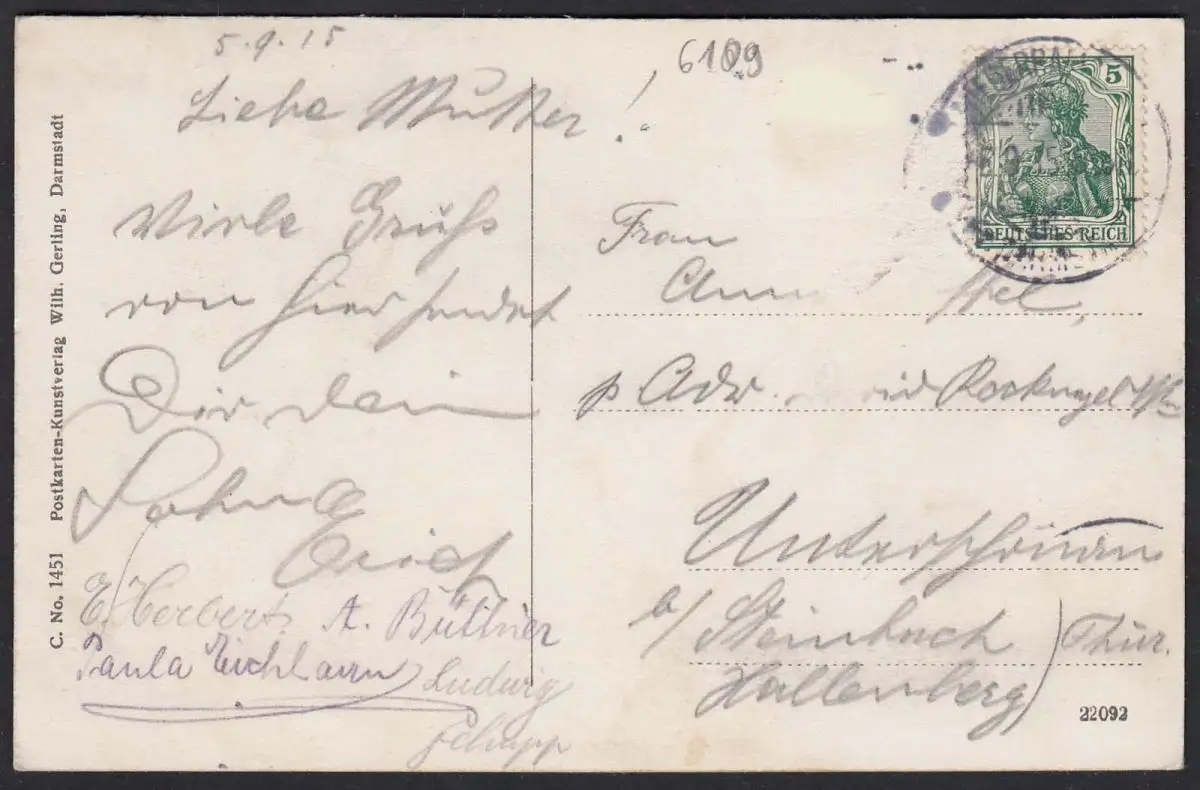 5.9.15
6109
Liebe Mutter!
Viele Grüße
von hier sendet
Dir dein
Sohn
Erich
E. Herbert. A. Büttner
Paula Ludwig
Schupp
5
DEUTSCHES REICH
Frau
p Adr.
Unterschönau
b/ Steinbach
Hallenberg) Thür.
22092
C. No. 1451 Postkarten-Kunstverlag Wilh. Gerling, Darmstadt